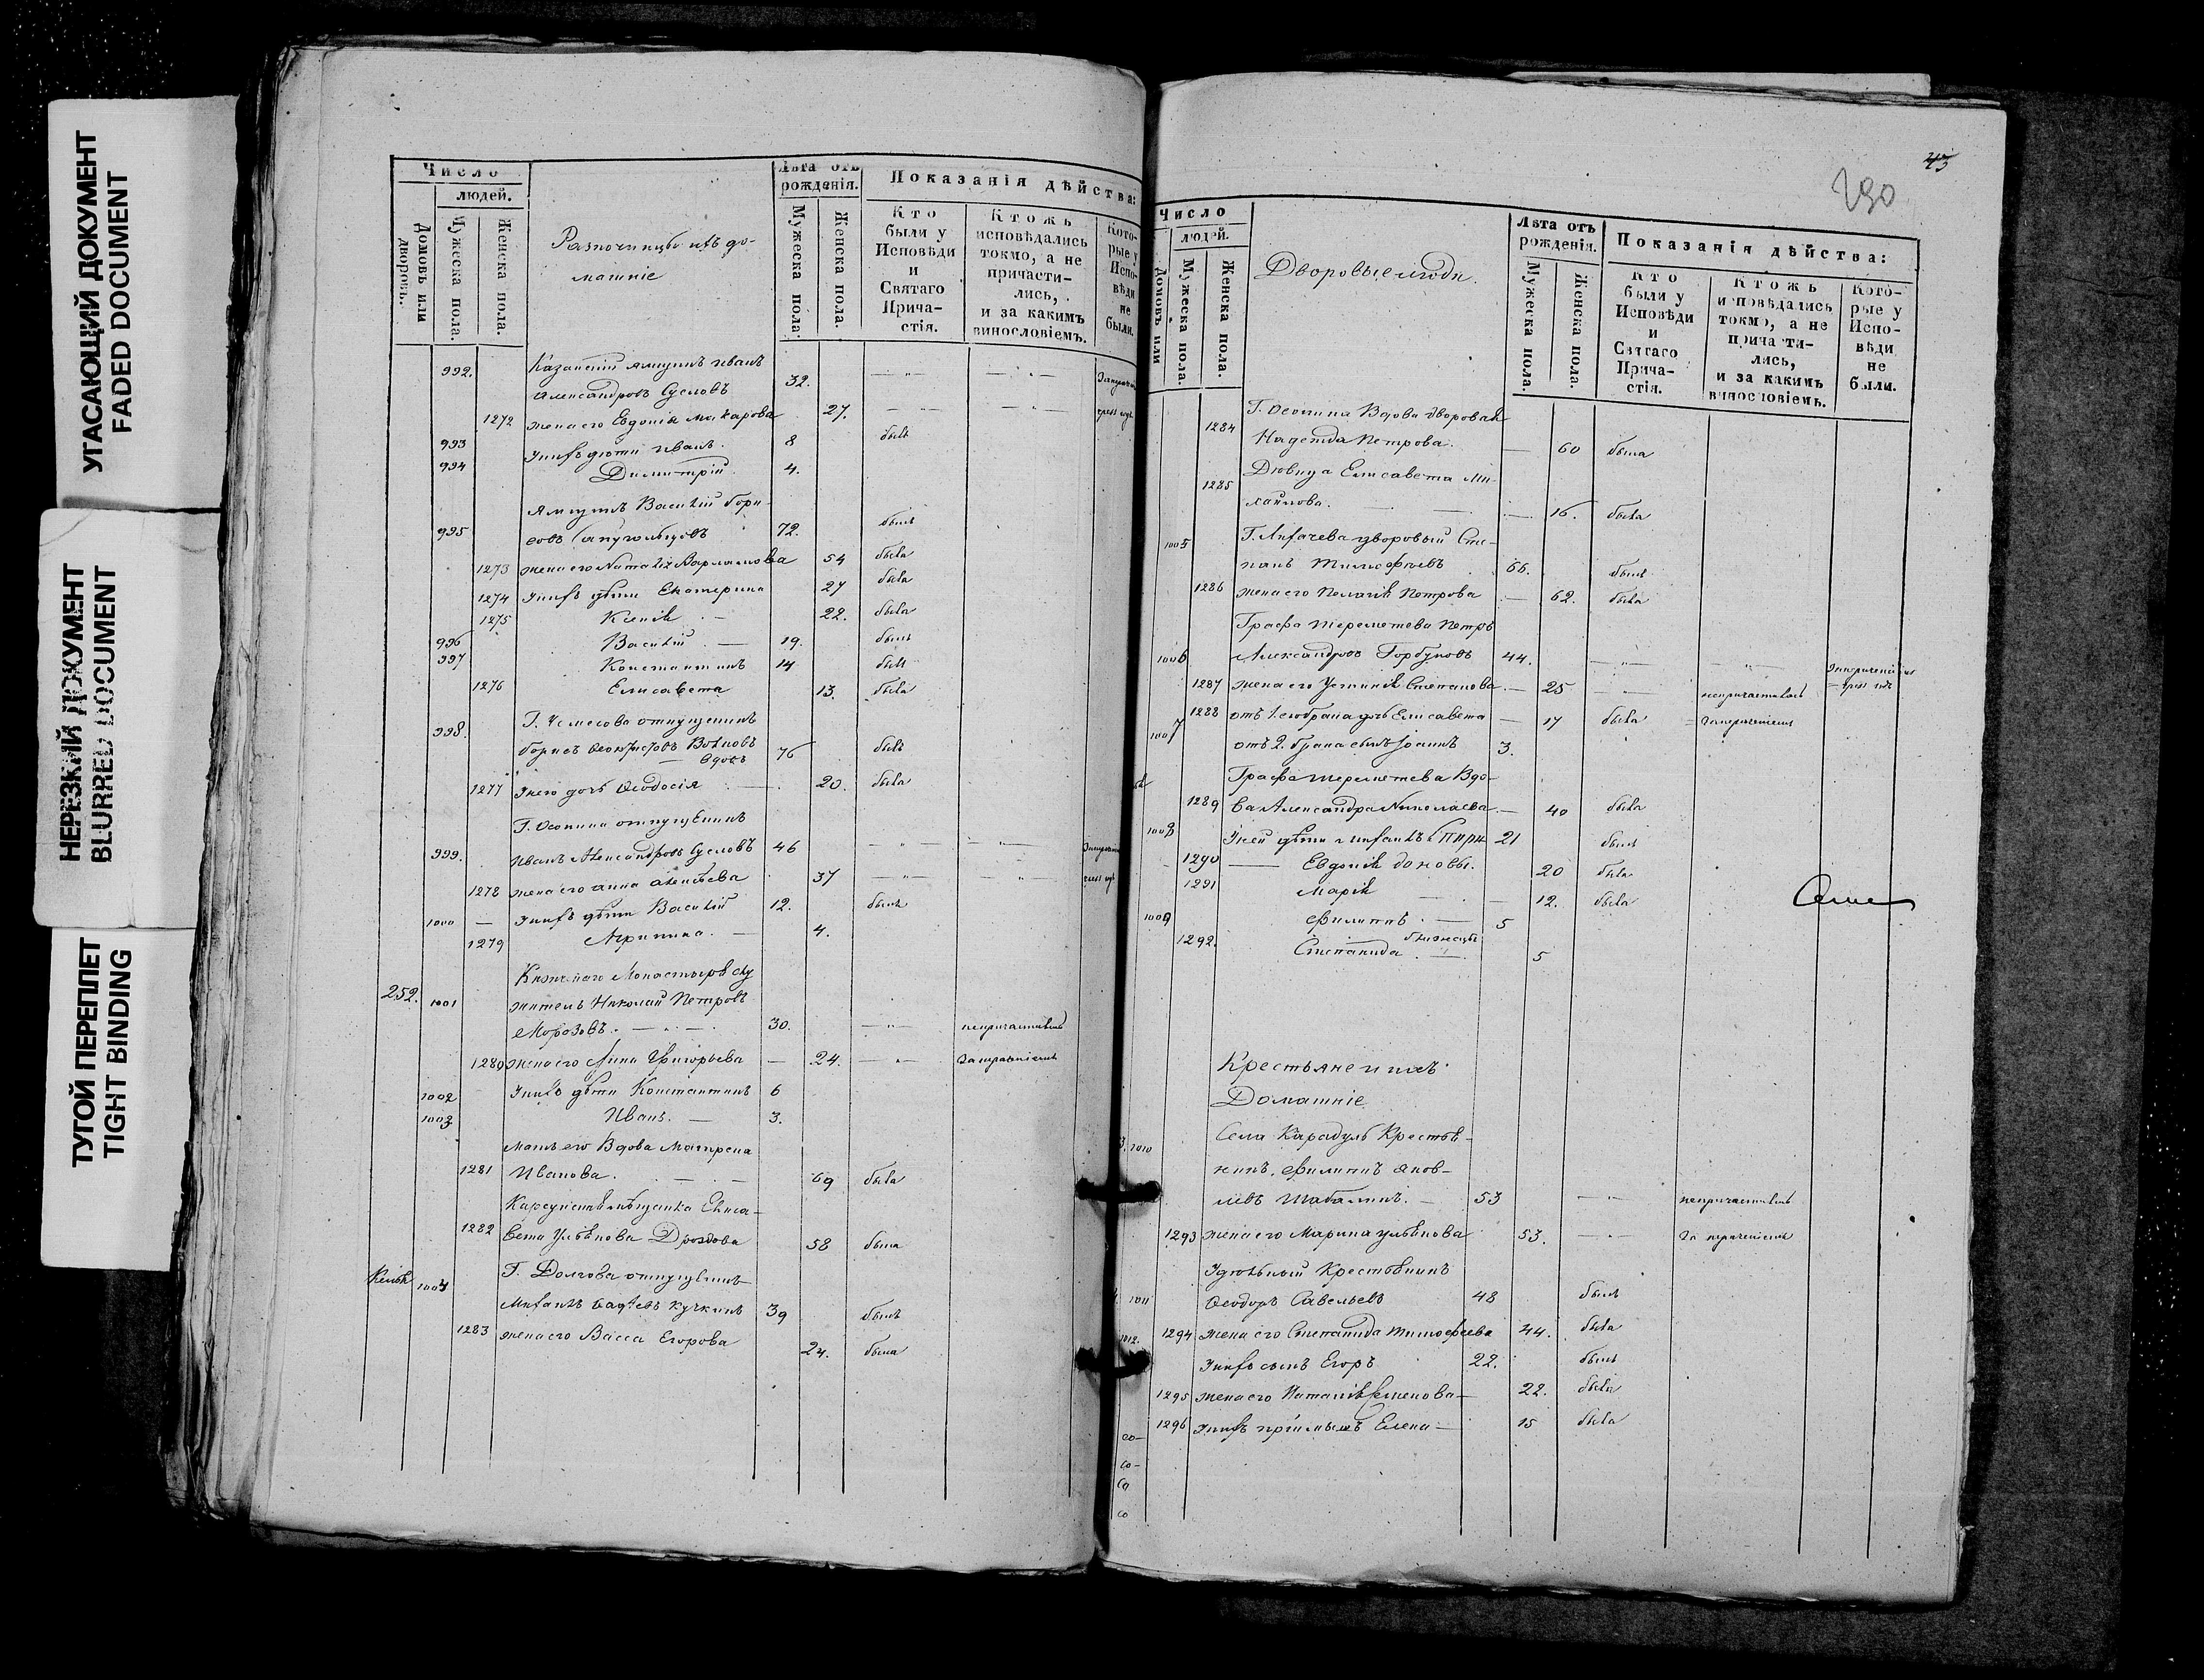 УГАСАЮЩИЙ ДОКУМЕНТ
FADED DOCUMENT
НЕРЕЗКИЙ ДОКУМЕНТ
BLURRED DOCUMENT
ТУГОЙ ПЕРЕПЛЕТ
TIGHT BINDING
Число
людей.
Домовъ или дворовъ.
Мужеска пола.
Женска пола.
Разночинцы ихъ до-
машніе
Лѣта отъ
рожденія.
Мужеска пола.
Женска пола.
Показанія дѣйства:
Кто
были у
Исповѣди
и
Святаго
Прича-
стія.
Ктожъ
исповѣдались
токмо, а не
причасти-
лись,
и за какимъ
винословіемъ.
Кото-
рые у
Испо-
вѣди
не
были.
992. Казанскій ямщикъ Иванъ
Александровъ Сусловъ 32.
1272 жена его Евдокія Макарова 27.
993 У нихъ дѣти Иванъ. 8 былъ
994 Димитрій 4.
Ямщикъ Василій Бори-
995 совъ 72. былъ
1273 жена его Наталія Варламова 54 была
1274 У нихъ дѣти Екатерина 27 была
1275 Ксенія 22. была
996 Василій 19. былъ
997 Константинъ 14 былъ
1276 Елисавета 13. была
998. Г. отпущенникъ
Борисъ Волковъ 76 былъ
вдовъ
1277 У него дочь Ѳеодосія 20. была
Г. Осокина отпущенникъ
999. Иванъ Александровъ Сусловъ 46
1278 жена его Анна 37
1000 У нихъ дѣти Василій 12. былъ
1279 Агрипина. 4.
Кизическаго Монастыря слу
252. 1001 житель Николай Петровъ
Морозовъ. 30. непричастился
1280 жена его Анна Григорьева 24. за
1002 У нихъ дѣти Константинъ 6
1003 Иванъ. 3.
мать его Вдова Матрена
1281 Иванова. 69 была
мѣщанка Елиса-
1282 вета Ульянова Дроздова 58 была
1004 Г. Долгова отпущенникъ
Михаилъ Кучкинъ 39 былъ
1283 жена его Васса Егорова 24. была
43
290
Число
людей.
Домовъ или
Мужеска пола.
Женска пола.
Дворовые люди.
Лѣта отъ
рожденія.
Мужеска пола.
Женска пола.
Показанія дѣйства:
Кто
были у
Исповѣди
и
Святаго
Прича-
стія.
Ктожъ
исповѣдались
токмо, а не
причасти-
лись,
и за какимъ
винословіемъ.
Кото-
рые у
Испо-
вѣди
не
были.
Г. Осокина Вдова дворовая
1284 Надежда Петрова. 60 была
1285 Дѣвица Елисавета Ми-
хайлова. 16. была
1005 Г. Лихачева дворовый Сте-
панъ Тимофѣевъ 66. былъ
1286 жена его Пелагія Петрова 62. была
Графа Шереметева Петръ
1006 Александровъ Горбуновъ 44.
1287 жена его Устинія Степанова 25 непричастилась
1288 отъ 1. его брака дочь Елисавета 17 была
1007 отъ 2. брака сынъ Іоаннъ 3.
Графа Шереметева Вдо-
1289 ва Александра Николаева 40 была
1008 У ней дѣти Михаилъ 21 былъ
1290 Евдокія 20 была
1291 Марія 12. была
1009 Филиппъ 5
близнецы
1292. Степанида 5
Крестьяне и ихъ
Домашніе
1010 Села Карадуль Крестья-
нинъ Филиппъ Яков-
левъ Шабалинъ. 53 непричастился
1293 жена его Марина Ульянова 53.
Удѣльный Крестьянинъ
1011 Ѳеодоръ Савельевъ 48 былъ
1294 жена его Степанида Тимофеева 44. была
1012. У нихъ сынъ Егоръ 22. былъ
1295 жена его Наталія Семенова 22. была
1296 У нихъ пріимышъ Елена 15 была